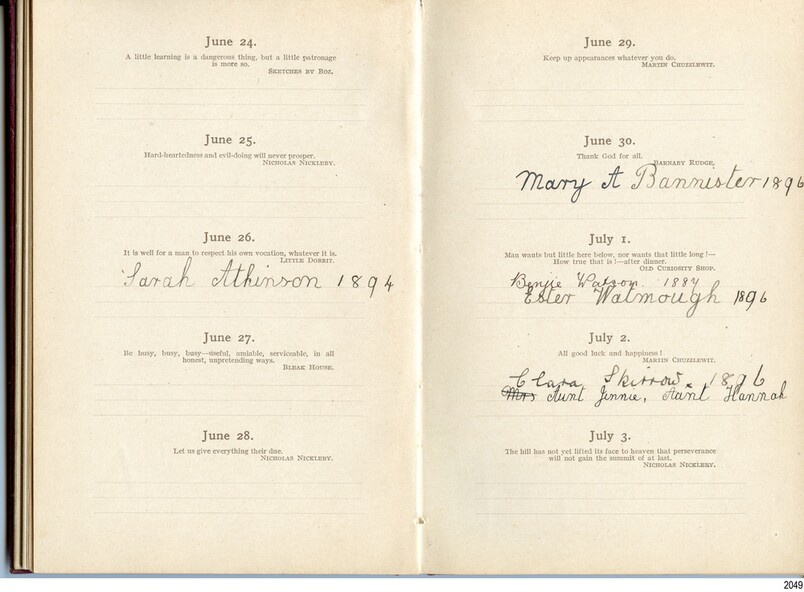 June 24.
A little learning is a dangerous thing, but a little patronage
is more so.
SKETCHES BY BOZ.
June 25.
Hard-heartedness and evil-doing will never prosper.
NICHOLAS NICKLEBY.
June 26.
It is well for a man to respect his own vocation, whatever it is.
LITTLE DORRIT.
Sarah Atkinson 1894
June 27.
Be busy, busy, busy—useful, amiable, serviceable, in all
honest, unpretending ways.
BLEAK HOUSE.
June 28.
Let us give everything their due.
NICHOLAS NICKLEBY.
June 29.
Keep up appearances whatever you do.
MARTIN CHUZZLEWIT.
June 30.
Thank God for all.
BARNABY RUDGE.
Mary A Bannister 1896
July 1.
Man wants but little here below, nor wants that little long!—
How true that is!—after dinner.
OLD CURIOSITY SHOP.
Benjie Watson. 1887
Ester Watmough 1896
July 2.
All good luck and happiness!
MARTIN CHUZZLEWIT.
Clara Skirrow. 1896
Mrs Aunt Jennie, Aunt Hannah
July 3.
The hill has not yet lifted its face to heaven that perseverance
will not gain the summit of at last.
NICHOLAS NICKLEBY.
2049